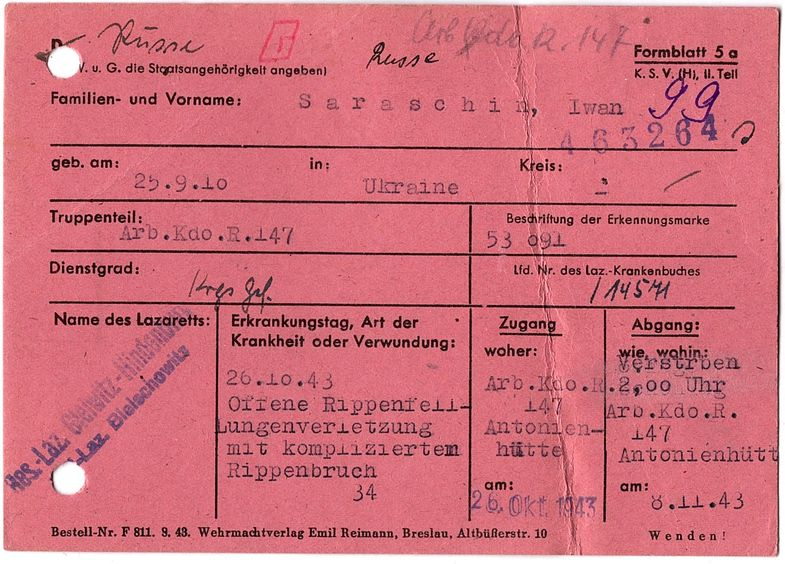 Russe
Arb Kdo R. 147
Russe
Formblatt 5 a
u. G. die Staatsangehörigkeit angeben)
K. S. V. (H), II. Teil
Familien- und Vorname:
Saraschin, Iwan
99
463264
geb. am:
in:
Kreis:
25.9.10
Ukraine
Truppenteil:
Beschriftung der Erkennungsmarke
Arb.Kdo.R.147
53 091
Dienstgrad:
Lfd. Nr. des Laz.-Krankenbuches
Krgs Gef.
/14571
Name des Lazaretts:
Erkrankungstag, Art der
Krankheit oder Verwundung:
Zugang
woher:
Abgang:
wie, wohin:
Res.-Laz. Gleiwitz-Hindenburg
-Laz. Bielschowitz
26.10.43
Offene Rippenfell-
Lungenverletzung
mit kompliziertem
Rippenbruch
34
Arb.Kdo.R.
147
Antonien-
hütte
am:
26. Okt. 1943
Verstrben
2,00 Uhr
Arb.Kdo.R.
147
Antonienhütt
am:
8.11.43
Bestell-Nr. F 811. 9. 43. Wehrmachtverlag Emil Reimann, Breslau, Altbüßerstr. 10
Wenden!